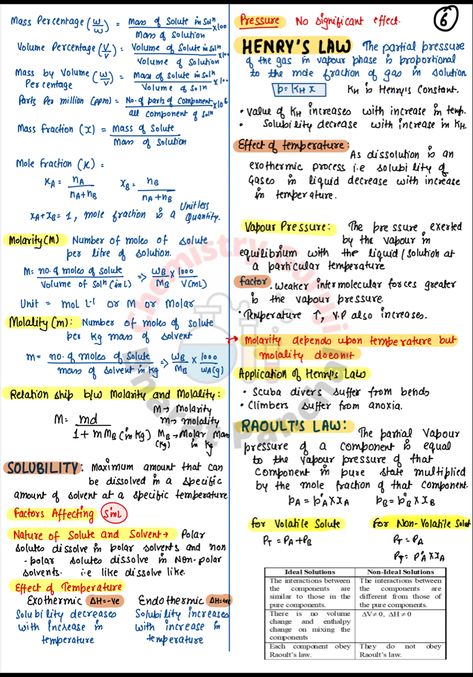 Mass Percentage (W/W) = Mass of Solute in Solⁿ / Mass of Solution x100
Volume Percentage (V/V) = Volume of Solute in Solⁿ / Volume of Solution x100
Mass by Volume Percentage (W/V) = Mass of Solute in Solⁿ / Volume of Solⁿ x100
Parts Per million (ppm) = No. of parts of Component / all Component of Solⁿ x10⁶
Mass Fraction (x) = Mass of Solute / Mass of Solution
Mole Fraction (x) =
xA = nA / nA+nB xB = nB / nA+nB
xA+xB = 1, mole fraction is a Unitless quantity.
Molarity(M) Number of moles of solute
per litre of solution
M = no. of moles of Solute / Volume of Solⁿ (in L) ⇒ WB / MB x 1000 / V(mL)
Unit = mol L⁻¹ or M or Molar
Molality (m): Number of moles of solute
per Kg mass of solvent
m = no. of moles of Solute / mass of solvent in Kg ⇒ WB / MB x 1000 / WA(g)
Relation ship b/w Molarity and Molality:
M → Molarity
m → molality
M = md / 1 + m MB (in Kg)
MB → Molar Mass in Kg
SOLUBILITY: Maximum amount that can
be dissolved in a specific
amount of solvent at a specific temperature
Factors Affecting SinL
Nature of Solute and Solvent → Polar
Solutes dissolve in polar solvents and non
-polar solutes dissolve in Non-polar
solvents. i.e like dissolve like.
Effect of Temperature
Exothermic ΔH=-ve
Solubility decreases
with increase in
temperature
Endothermic ΔH=+ve
Solubility increases
with increase in
temperature
6
Pressure No significant effect.
HENRY'S LAW The partial pressure
of the gas in vapour phase is proportional
to the mole fraction of gas in solution.
p = KH x KH is Henry's Constant.
• Value of KH increases with increase in temp.
• Solubility decrease with increase in KH.
Effect of temperature:
As dissolution is an
exothermic process i.e solubility of
Gases in liquid decrease with increase
in temperature.
Vapour Pressure: The pressure exerted
by the vapour in
equilibrium with the liquid/solution at
a particular temperature
factor • Weaker intermolecular forces greater
is the vapour pressure.
• Temperature ↑, V.P also increases.
Molarity depends upon temperature but
molality doesnit
Application of Henry's Law
• Scuba divers suffer from bends
• Climbers suffer from anoxia.
RAOULT'S LAW: The partial Vapour
pressure of a Component is equal
to the vapour pressure of that
Component in pure state multiplied
by the mole fraction of that component.
pA = p°A x xA pB = p°B x xB
for Volatile Solute
PT = PA+PB
for Non-Volatile Solut
PT = PA
PT = p°A x xA
Ideal Solutions Non-Ideal Solutions
The interactions between the components are similar to those in the pure components.
The interactions between the components are different from those of the pure components.
There is no volume change and enthalpy change on mixing the components
ΔV≠ 0, ΔH ≠ 0
Each component obey Raoult's law.
They do not obey Raoult's law.